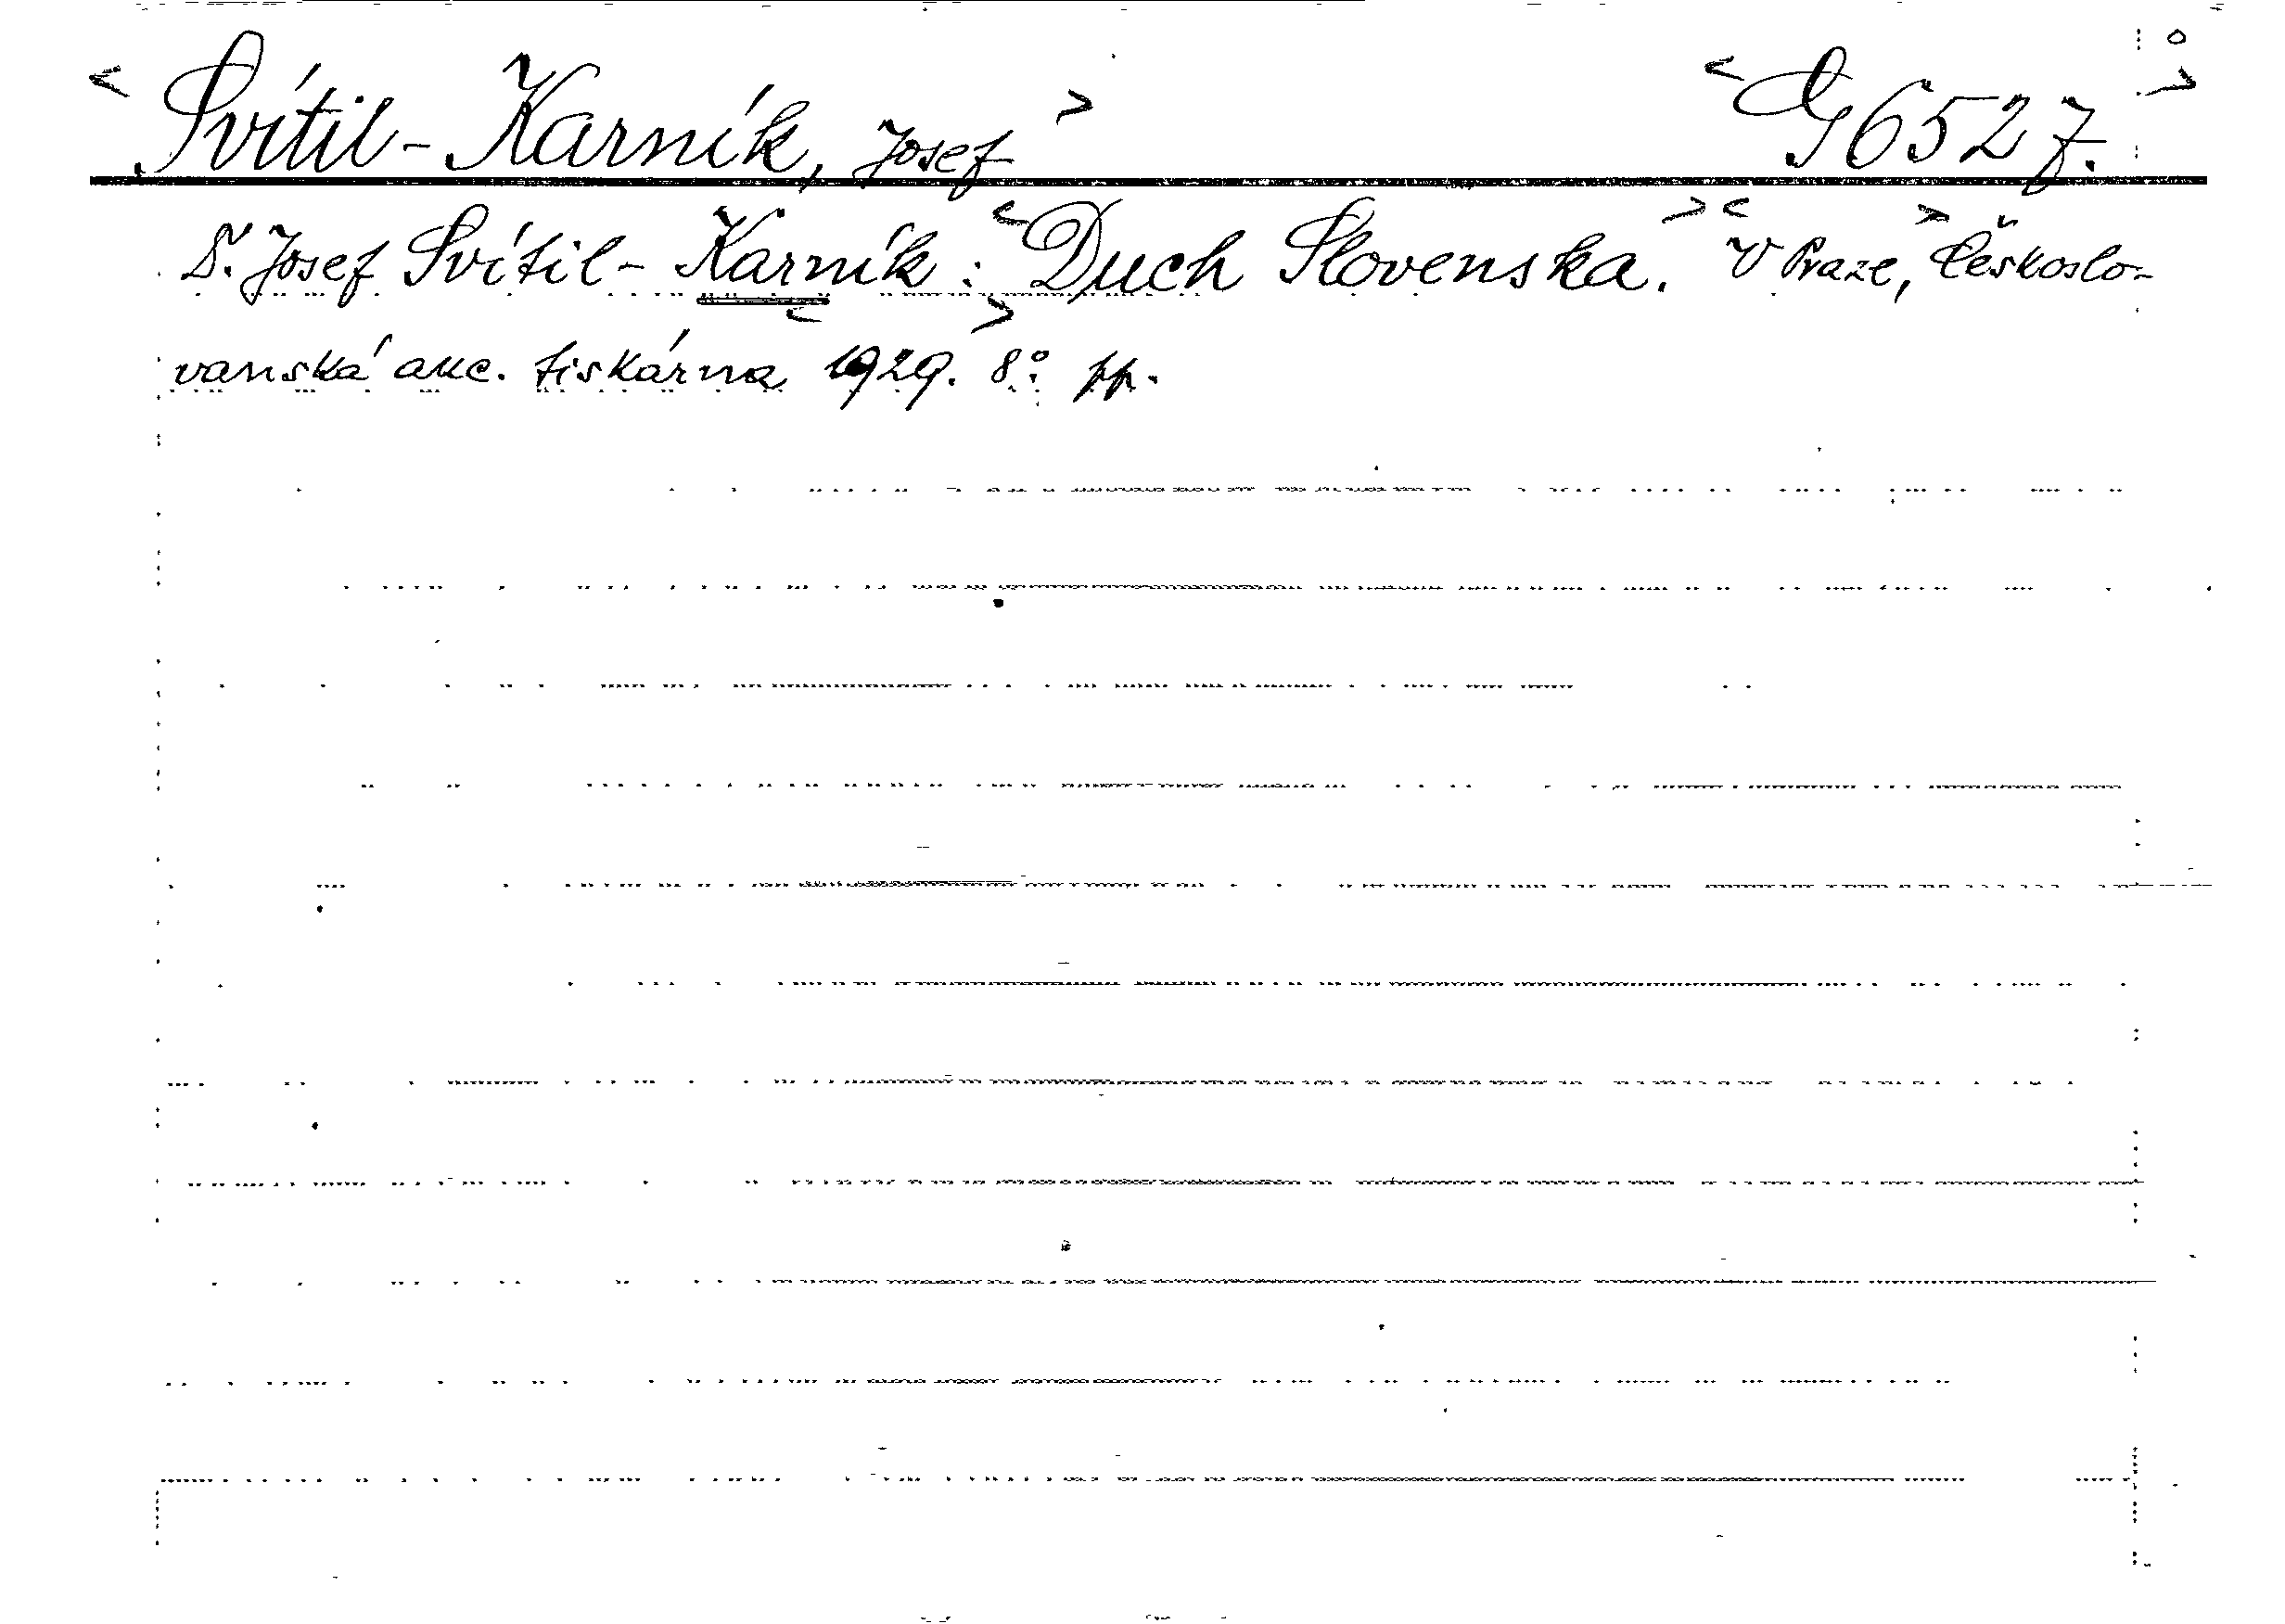 < Svítil-Karník, Josef > < G 6527. >
Dr. Josef Svítil-Karník: < Duch Slovenska. > < V Praze, > Českoslo-
vanská akc. tiskárna < 1929. > 8° pp.